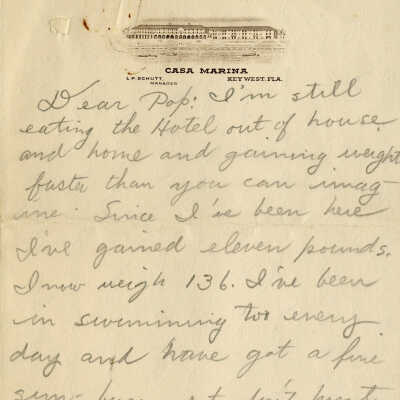 CASA MARINA
L.P. SCHUTT, MANAGER
KEY WEST, FLA.
Dear Pop: I'm still
eating the Hotel out of house
and home and gaining weight
faster than you can imag-
ine. Since I've been here
I've gained eleven pounds.
I now weigh 136. I've been
in swimming too every
day and have got a fine